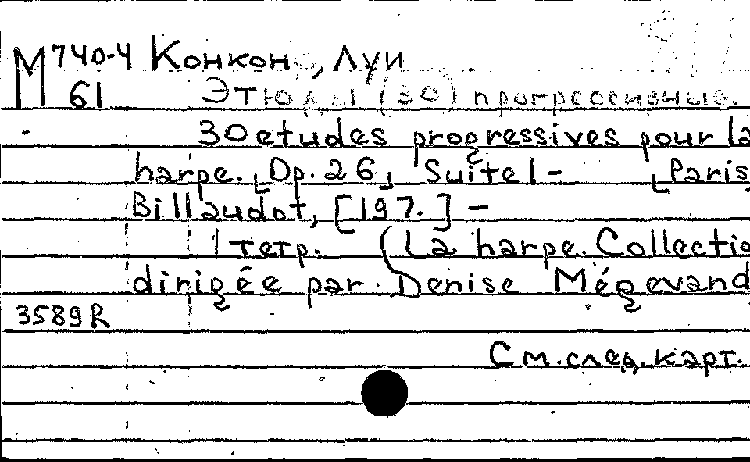 М 740-4 Конкон, Луи
61 Этюды (30) прогрессивные.
30 etudes progressives pour la
harpe. [Op. 26] Suite 1- [Paris
Billaudot, [197.] -
1 тетр. (La harpe. Collectio
dirigée par Denise Mégevand
3589R
См. след. карт.